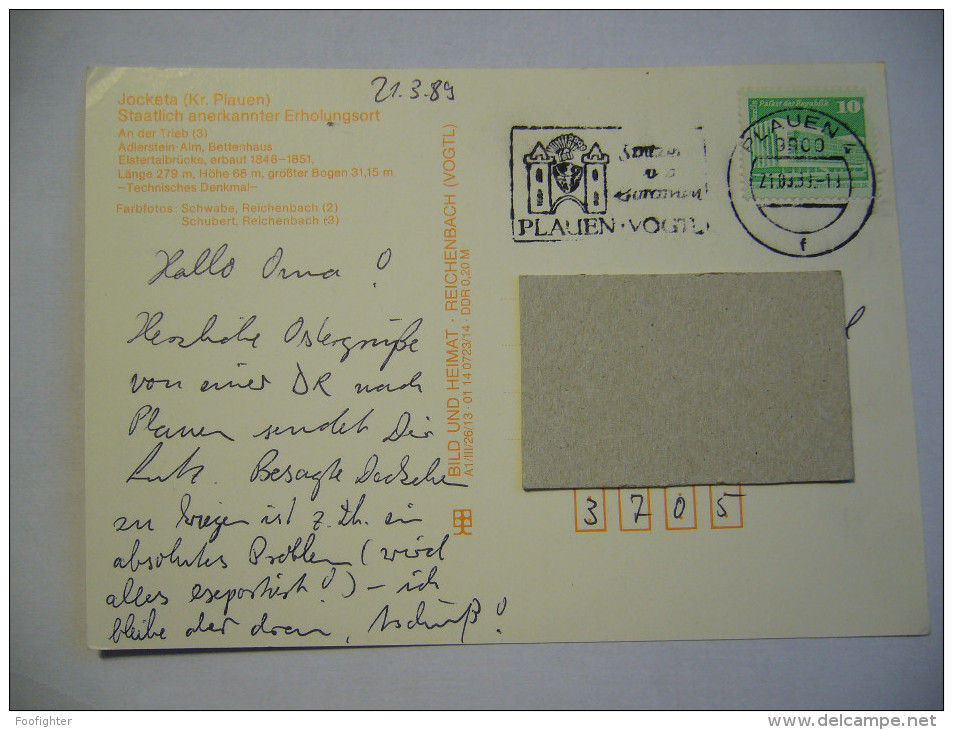 21.3.89
Jocketa (Kr. Plauen)
Staatlich anerkannter Erholungsort
An der Trieb (3)
Adlerstein-Alm, Bettenhaus
Elstertalbrücke, erbaut 1846–1851,
Länge 279 m, Höhe 68 m, größter Bogen 31,15 m
–Technisches Denkmal–
Farbfotos: Schwabe, Reichenbach (2)
Schubert, Reichenbach (3)
Hallo Oma!
Herzliche Ostergrüße
von einer DR nach
Plauen sendet Dir
Lutz. Besagte Deckchen
zu kriegen ist z. Zt. ein
absolutes Problem (wird
alles exportiert!) – ich
bleibe aber dran, tschüß!
BILD UND HEIMAT · REICHENBACH (VOGTL)
A1/III/26/13 · 01 14 0723/14 · DDR 0,20 M
PLAUEN · VOGTL
Palast der Republik 10
PLAUEN 4
9900
f
3 7 0 5
Foofighter
www.delcampe.net